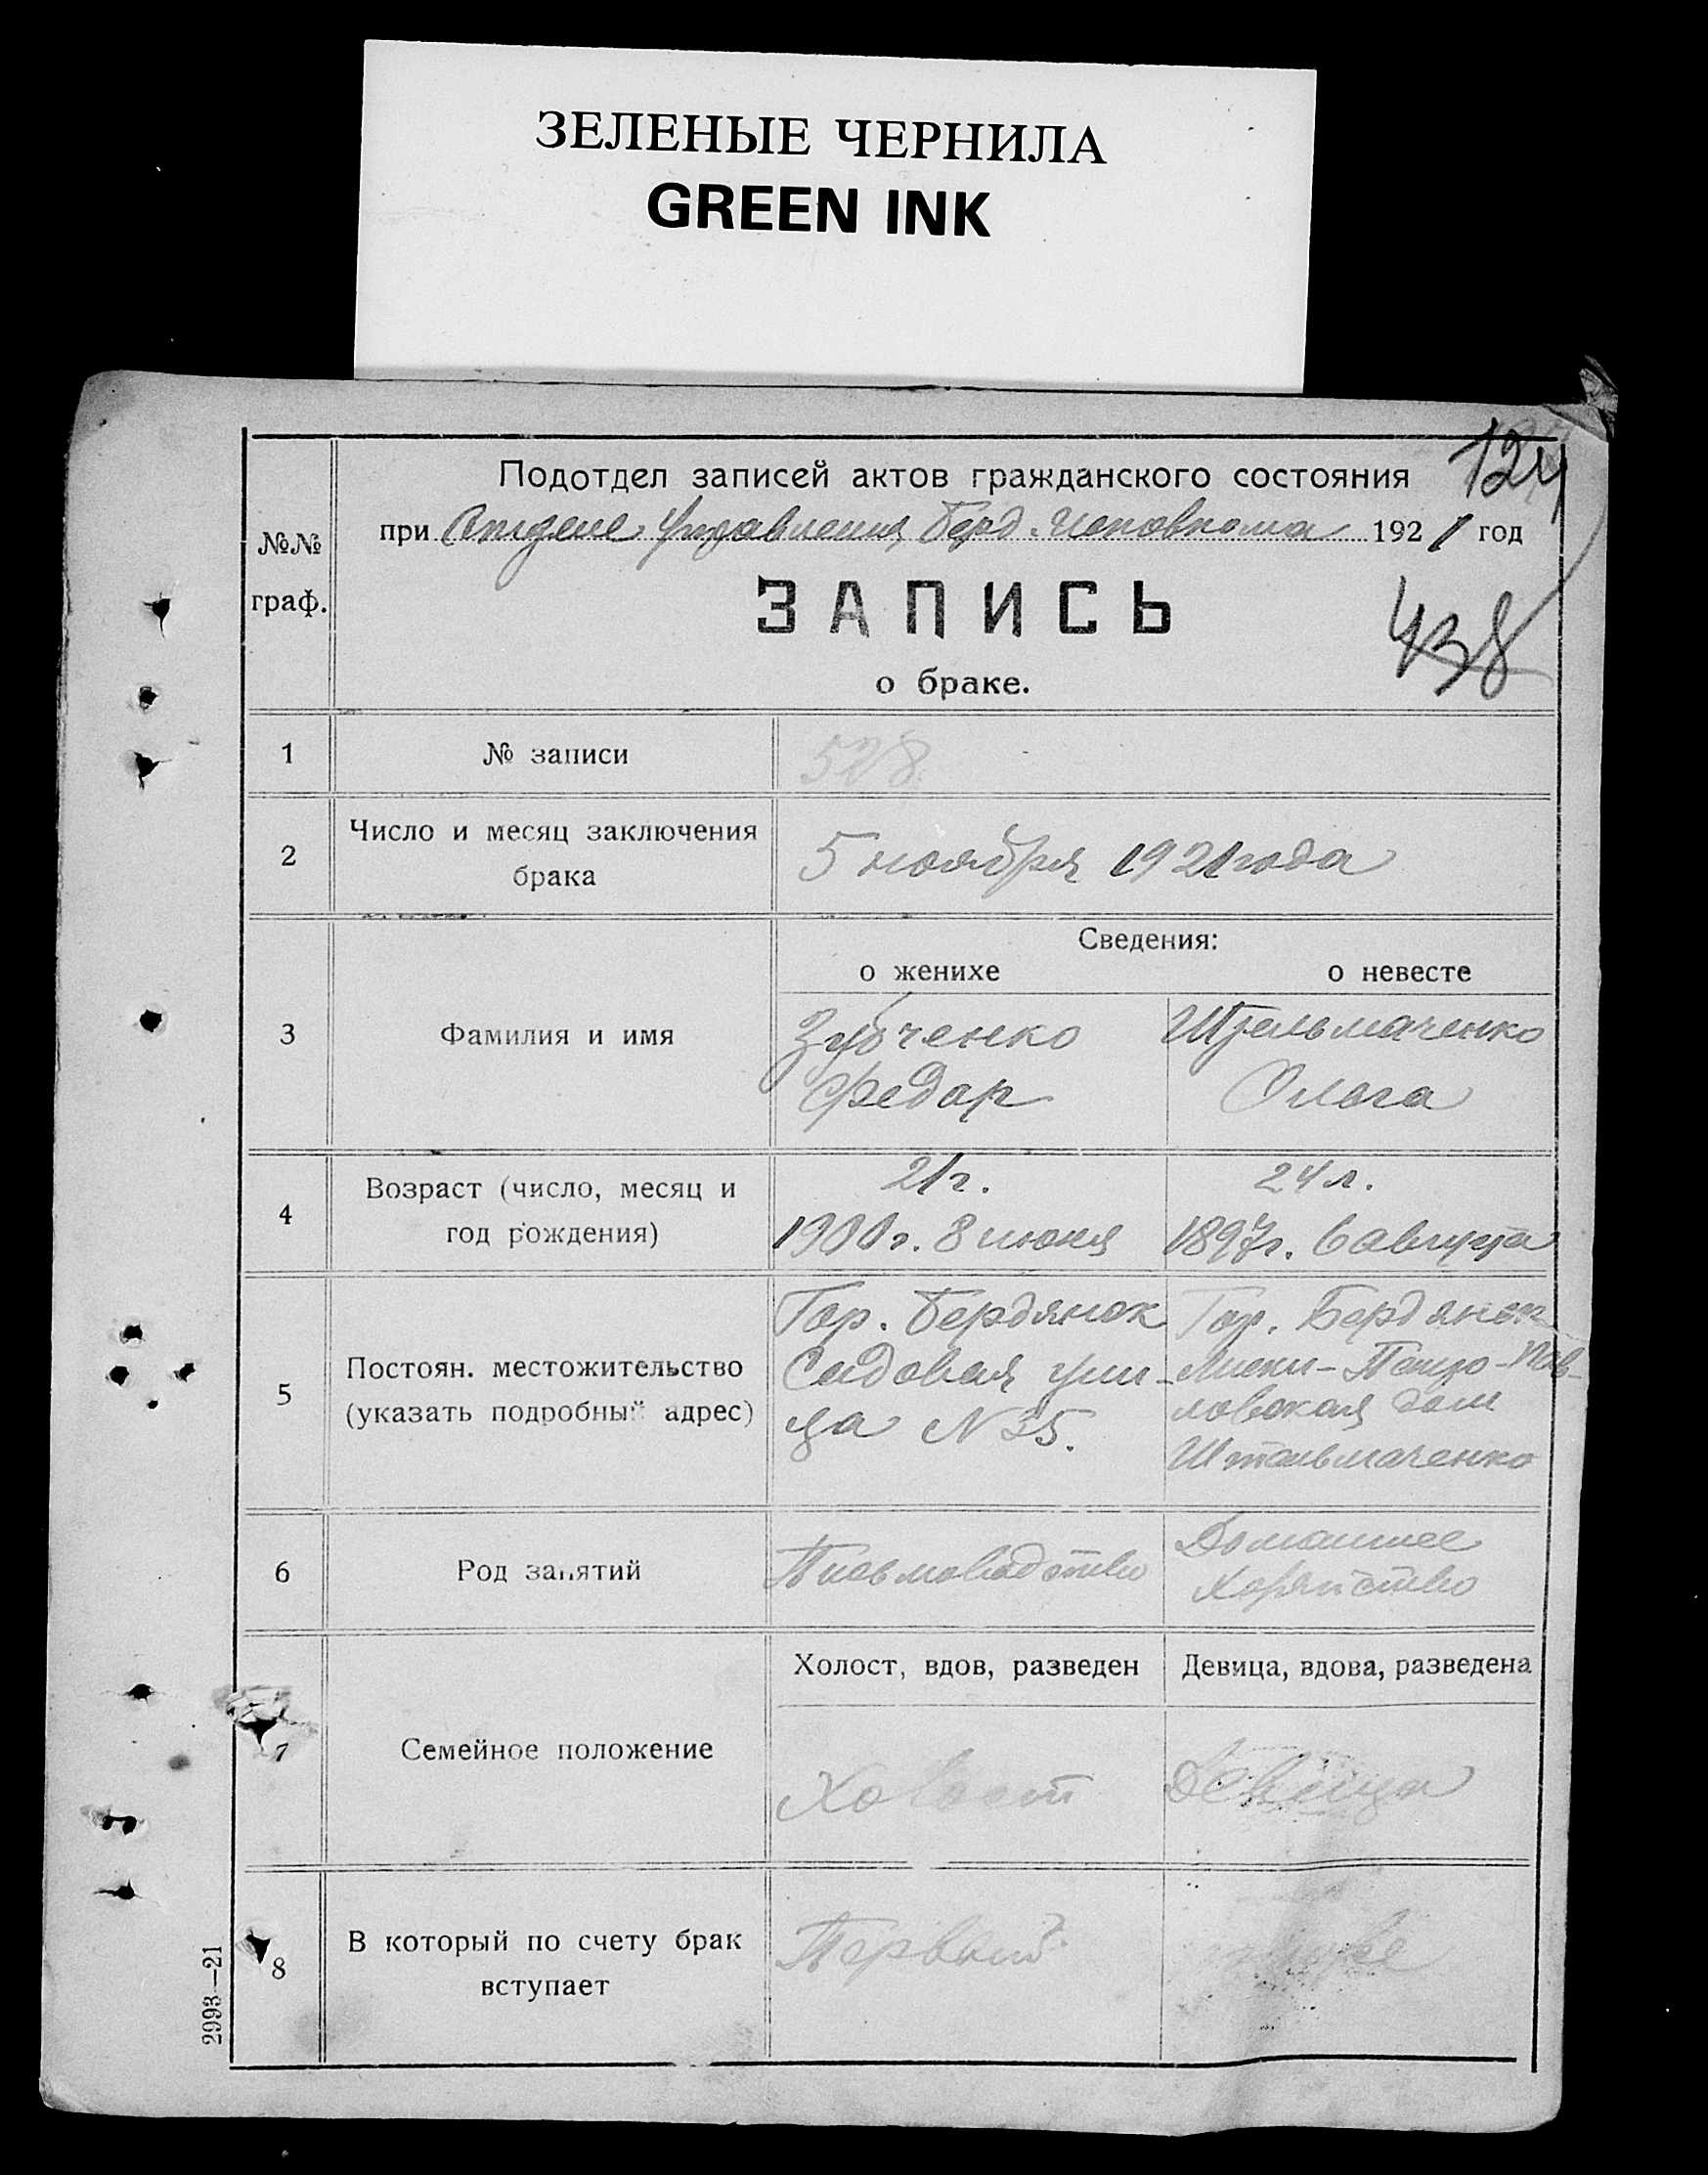 ЗЕЛЕНЫЕ ЧЕРНИЛА
GREEN INK
124
№№ граф.
Подотдел записей актов гражданского состояния
при Отделе Управления Берд. Исповкома 1921 год
ЗАПИСЬ
438
о браке.
1 № записи 528
2 Число и месяц заключения брака 5 ноября 1921 года
3 Фамилия и имя
Сведения:
о женихе о невесте
Зубченко
Федор
Штельмаченко
Ольга
4 Возраст (число, месяц и год рождения)
21 г.
1900 г. 8 июня
24 л.
1897 г. 6 августа
5 Постоян. местожительство (указать подробный адрес)
Гор. Бердянск
Садовая ули-
ца N 35.
Гор. Бердянск
Лиски-Петро-Пав-
ловская дом
Штельмаченко
6 Род занятий
Письмоводство
Домашнее
хозяйство
7 Семейное положение
Холост, вдов, разведен
Девица, вдова, разведена
Холост
Девица
8 В который по счету брак вступает
Первый
2993—21